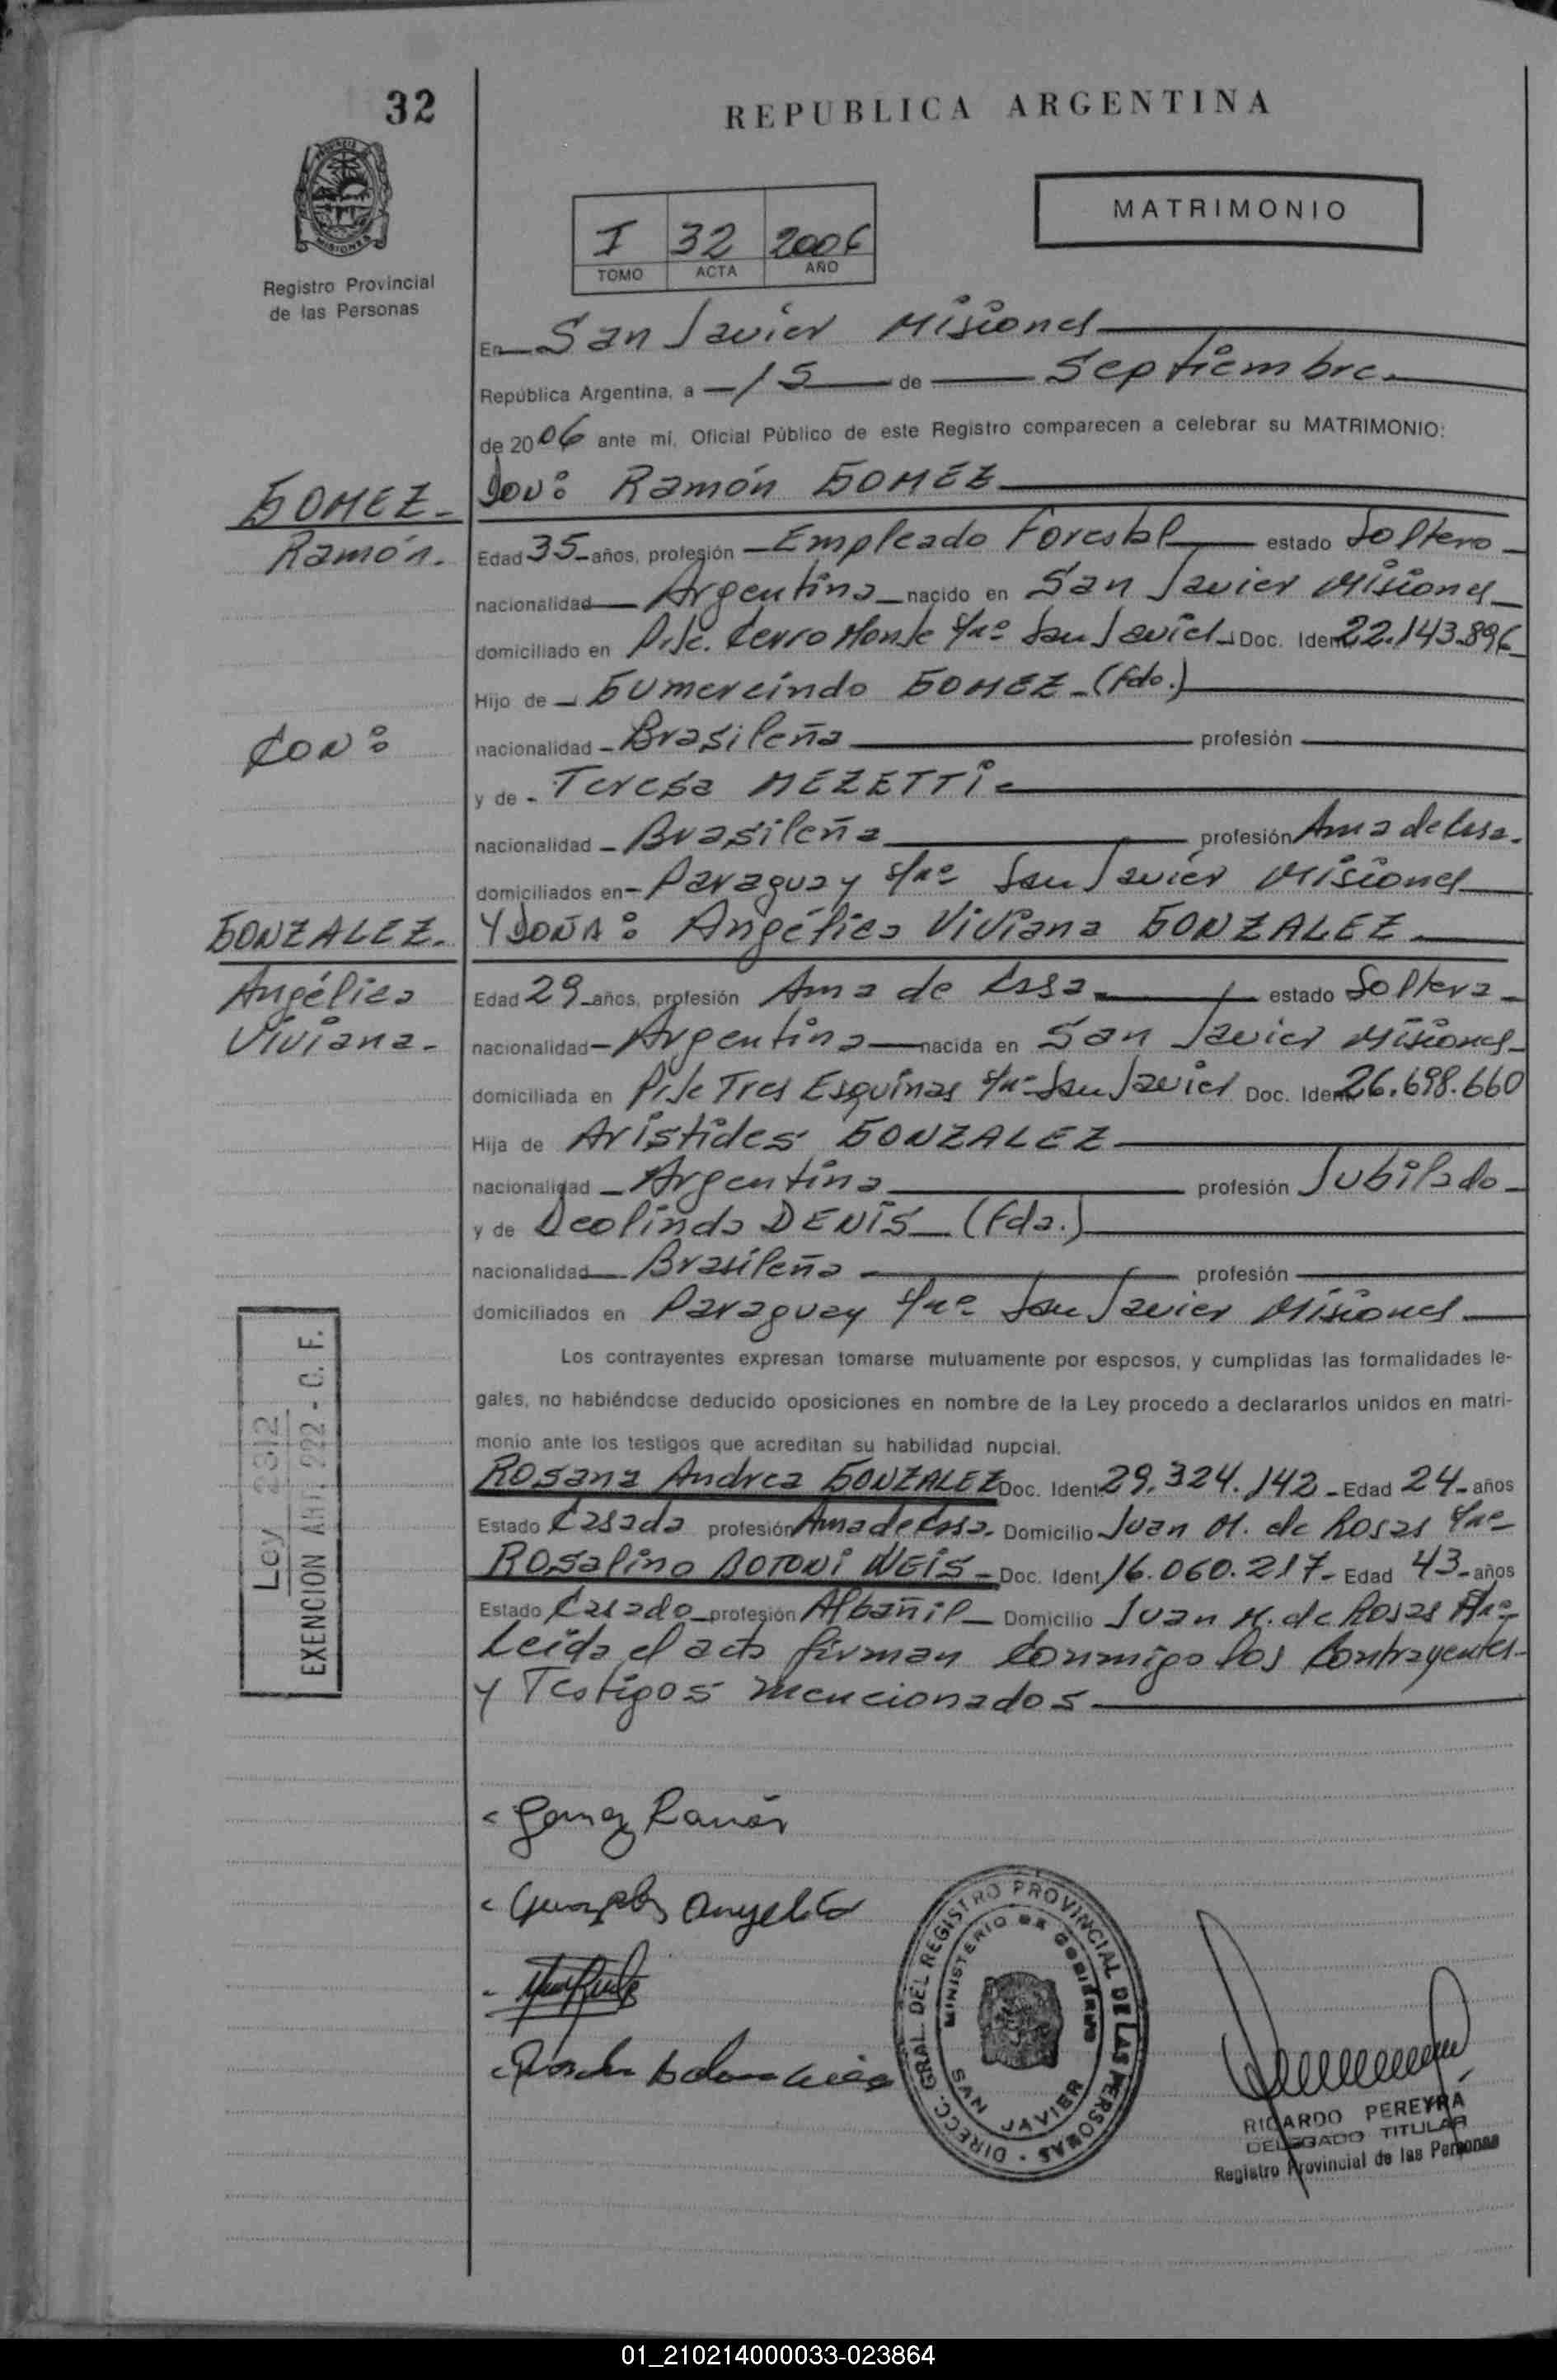 32
REPUBLICA ARGENTINA
MISIONES
Registro Provincial
de las Personas
I 32 2006
TOMO ACTA AÑO
MATRIMONIO
En San Javier Misiones
República Argentina, a 15 de Septiembre.
de 2006 ante mí, Oficial Público de este Registro comparecen a celebrar su MATRIMONIO:
GOMEZ
Ramón.
DON: Ramón GOMEZ
Edad 35 años, profesión Empleado Forestal estado Soltero
nacionalidad Argentina nacido en San Javier Misiones
domiciliado en Pje. Cerro Monje s/nº San Javier Doc. Ident. 22.143.896
Hijo de Gumercindo GOMEZ (Fdo.)
CON:
nacionalidad Brasileña profesión
y de Teresa MEZETTI
nacionalidad Brasileña profesión Ama de Casa.
domiciliados en Paraguay s/nº San Javier Misiones
GONZALEZ.
Angélica
Viviana
Y DOÑA: Angélica Viviana GONZALEZ
Edad 29 años, profesión Ama de Casa estado Soltera
nacionalidad Argentina nacida en San Javier Misiones
domiciliada en Pje Tres Esquinas s/nº San Javier Doc. Ident. 26.698.660
Hija de Aristides GONZALEZ
nacionalidad Argentina profesión Jubilado
y de Deolinda DENIS (Fda.)
nacionalidad Brasileña profesión
domiciliados en Paraguay s/nº San Javier Misiones
Los contrayentes expresan tomarse mutuamente por esposos, y cumplidas las formalidades le-
gales, no habiéndose deducido oposiciones en nombre de la Ley procedo a declararlos unidos en matri-
monio ante los testigos que acreditan su habilidad nupcial.
Ley 2312
EXENCION ART. 222 - C. F.
Rosana Andrea GONZALEZ Doc. Ident. 29.324.142 Edad 24 años
Estado Casada profesión Ama de Casa. Domicilio Juan M. de Rosas s/nº
Rosalino BOTONI WEIS Doc. Ident. 16.060.217 Edad 43 años
Estado Casado profesión Albañil Domicilio Juan M. de Rosas s/nº
Leida el acta firman conmigo los contrayentes
y Testigos mencionados
Gomez Ramón
Angelica
DIRECC. GRAL. DEL REGISTRO PROVINCIAL DE LAS PERSONAS
MINISTERIO DE GOBIERNO
SAN JAVIER
RICARDO PEREYRA
DELEGADO TITULAR
Registro Provincial de las Personas
01_210214000033-023864